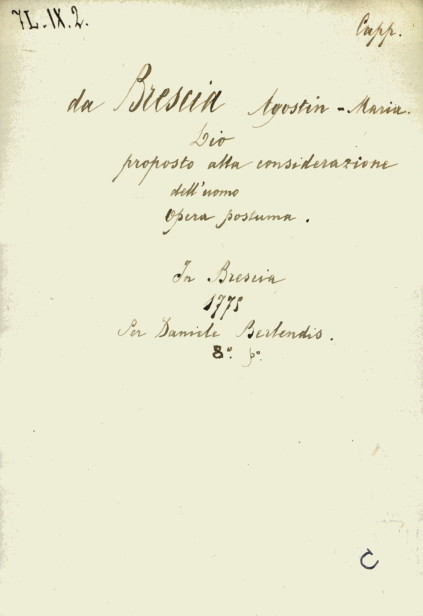 7L.IX.2.
Capp.
da Brescia Agostin-Maria.
Dio
proposto alla considerazione
dell'uomo
Opera postuma.
In Brescia
1775
Per Daniele Berlendis.
8°. p°.
C